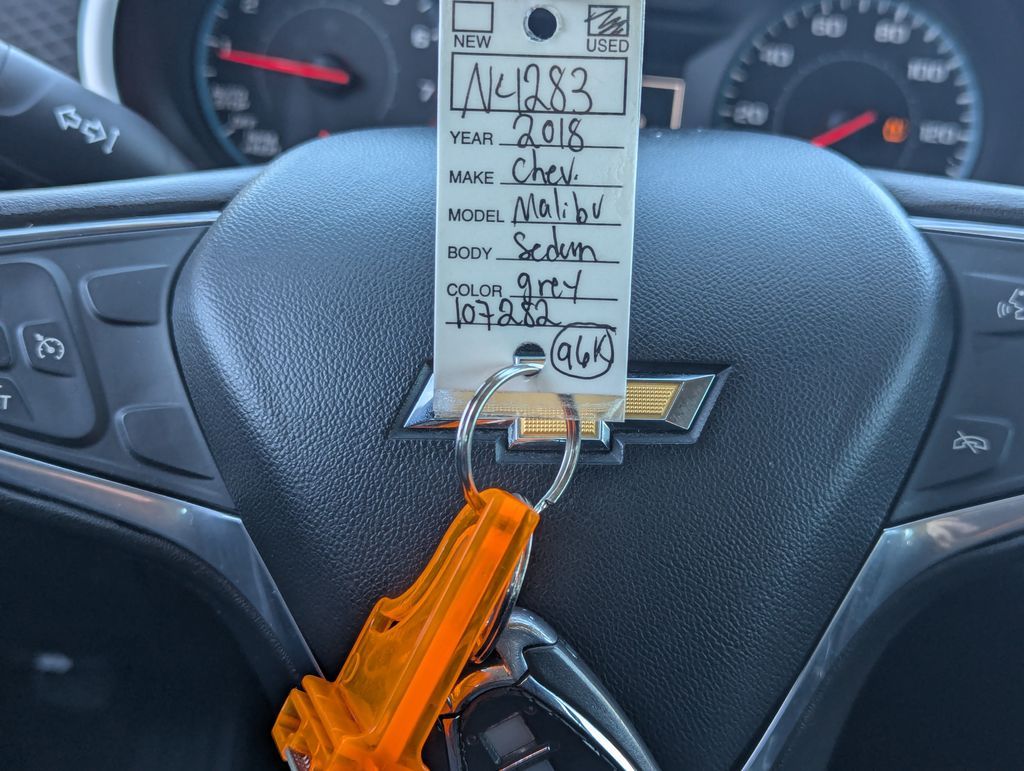 NEW USED
N4283
YEAR 2018
MAKE Chev.
MODEL Malibu
BODY Sedan
COLOR grey
107282
96K
2
6
7
20
40
60
80
100
120